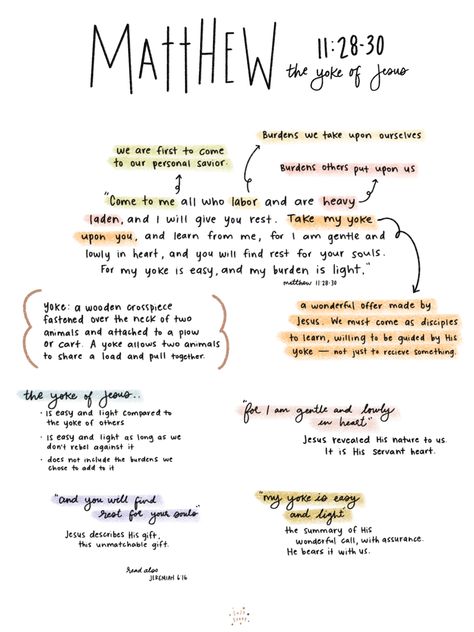 MattHEW
11:28-30
the yoke of Jesus
we are first to come
to our personal savior.
Burdens we take upon ourselves
Burdens others put upon us
"Come to me all who labor and are heavy
laden, and I will give you rest. Take my yoke
upon you, and learn from me, for I am gentle and
lowly in heart, and you will find rest for your souls.
For my yoke is easy, and my burden is light."
matthew 11:28-30
yoke: a wooden crosspiece
fastened over the neck of two
animals and attached to a plow
or cart. A yoke allows two animals
to share a load and pull together.
a wonderful offer made by
Jesus. We must come as disciples
to learn, willing to be guided by His
yoke — not just to recieve something.
the yoke of Jesus..
· is easy and light compared to
the yoke of others
· is easy and light as long as we
don't rebel against it
· does not include the burdens we
chose to add to it
"for I am gentle and lowly
in heart"
Jesus revealed His nature to us.
It is His servant heart.
"and you will find
rest for your souls"
Jesus describes His gift,
this unmatchable gift.
read also
JEREMIAH 6:16
"my yoke is easy
and light"
the summary of His
wonderful call, with assurance.
He bears it with us.